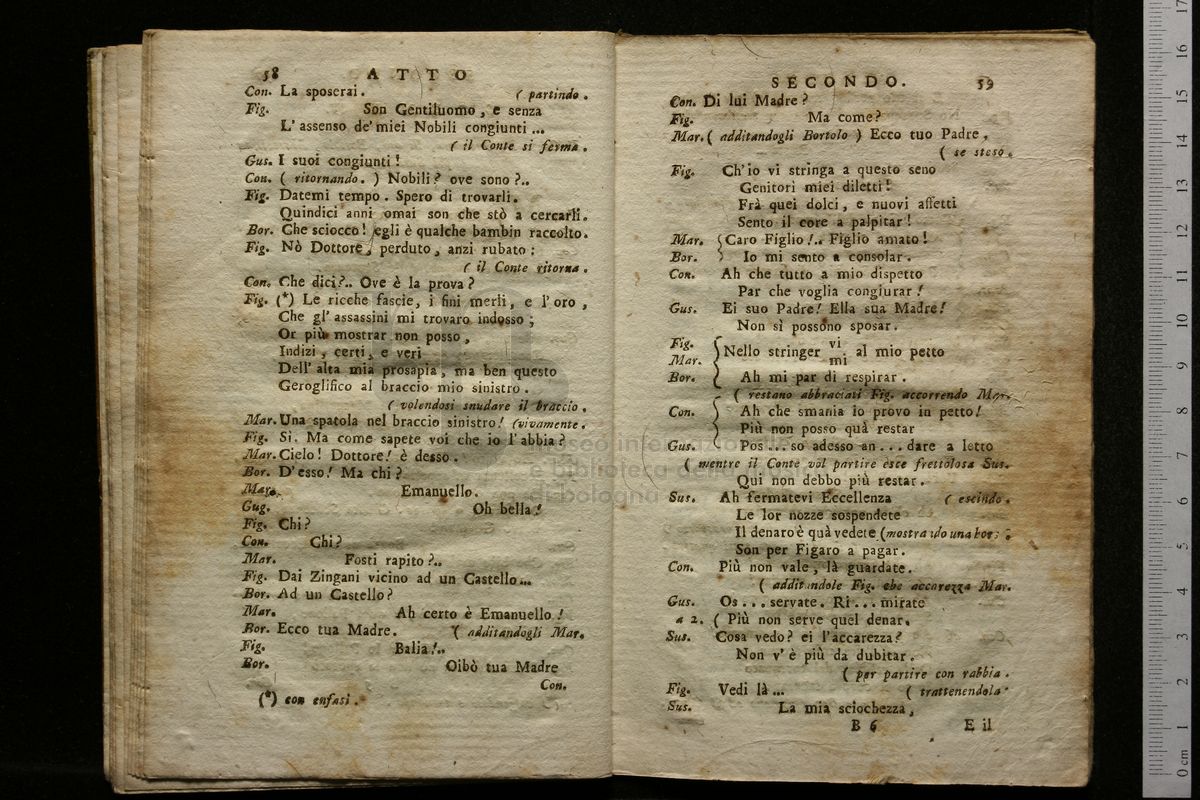 58 ATTO
Con. La sposerai. ( partindo.
Fig. Son Gentiluomo, e senza
L'assenso de' miei Nobili congiunti ...
( il Conte si ferma.
Gus. I suoi congiunti!
Con. ( ritornando. ) Nobili? ove sono?..
Fig. Datemi tempo. Spero di trovarli.
Quindici anni omai son che stò a cercarli.
Bor. Che sciocco! egli è qualche bambin raccolto.
Fig. Nò Dottore, perduto, anzi rubato:
( il Conte ritorna.
Con. Che dici?.. Ove è la prova?
Fig. (*) Le ricche fascie, i fini merli, e l'oro,
Che gl' assassini mi trovaro indosso;
Or più mostrar non posso,
Indizi, certi, e veri
Dell' alta mia prosapia, ma ben questo
Geroglifico al braccio mio sinistro.
( volendosi snudare il braccio.
Mar. Una spatola nel braccio sinistro! (vivamente.
Fig. Sì. Ma come sapete voi che io l'abbia?
Mar. Cielo! Dottore! è desso.
Bor. D'esso! Ma chi?
Mar. Emanuello.
Gug. Oh bella!
Fig. Chi?
Con. Chi?
Mar. Fosti rapito?..
Fig. Dai Zingani vicino ad un Castello...
Bor. Ad un Castello?
Mar. Ah certo è Emanuello!
Bor. Ecco tua Madre. ( additandogli Mar.
Fig. Balia!..
Bor. Oibò tua Madre
Con.
(*) con enfasi.
SECONDO. 59
Con. Di lui Madre?
Fig. Ma come?
Mar. ( additandogli Bortolo ) Ecco tuo Padre,
( se steso.
Fig. Ch'io vi stringa a questo seno
Genitori miei diletti!
Frà quei dolci, e nuovi affetti
Sento il core a palpitar!
Mar. { Caro Figlio!.. Figlio amato!
Bor. Io mi sento a consolar.
Con. Ah che tutto a mio dispetto
Par che voglia congiurar!
Gus. Ei suo Padre! Ella sua Madre!
Non sì possono sposar.
Fig. vi
Mar. { Nello stringer mi al mio petto
Bor. Ah mi par di respirar.
( restano abbracciati Fig. accorrendo Mar.
Con. { Ah che smania io provo in petto!
Più non posso quà restar
Gus. Pos...so adesso an...dare a letto
( mentre il Conte vol partire esce frettolosa Sus.
Qui non debbo più restar.
Sus. Ah fermatevi Eccellenza ( escindo.
Le lor nozze sospendete
Il denaro è quà vedete (mostrando una bor:
Son per Figaro a pagar.
Con. Più non vale, là guardate.
( additandole Fig. che accarezza Mar.
Gus. Os...servate. Ri...mirate
a 2. ( Più non serve quel denar.
Sus. Cosa vedo? ei l'accarezza?
Non v'è più da dubitar.
( per partire con rabbia.
Fig. Vedi là... ( trattenendola
Sus. La mia sciochezza,
B 6 E il
museo internazionale
e biblioteca della musica
di bologna
0 cm 1 2 3 4 5 6 7 8 9 10 11 12 13 14 15 16 17